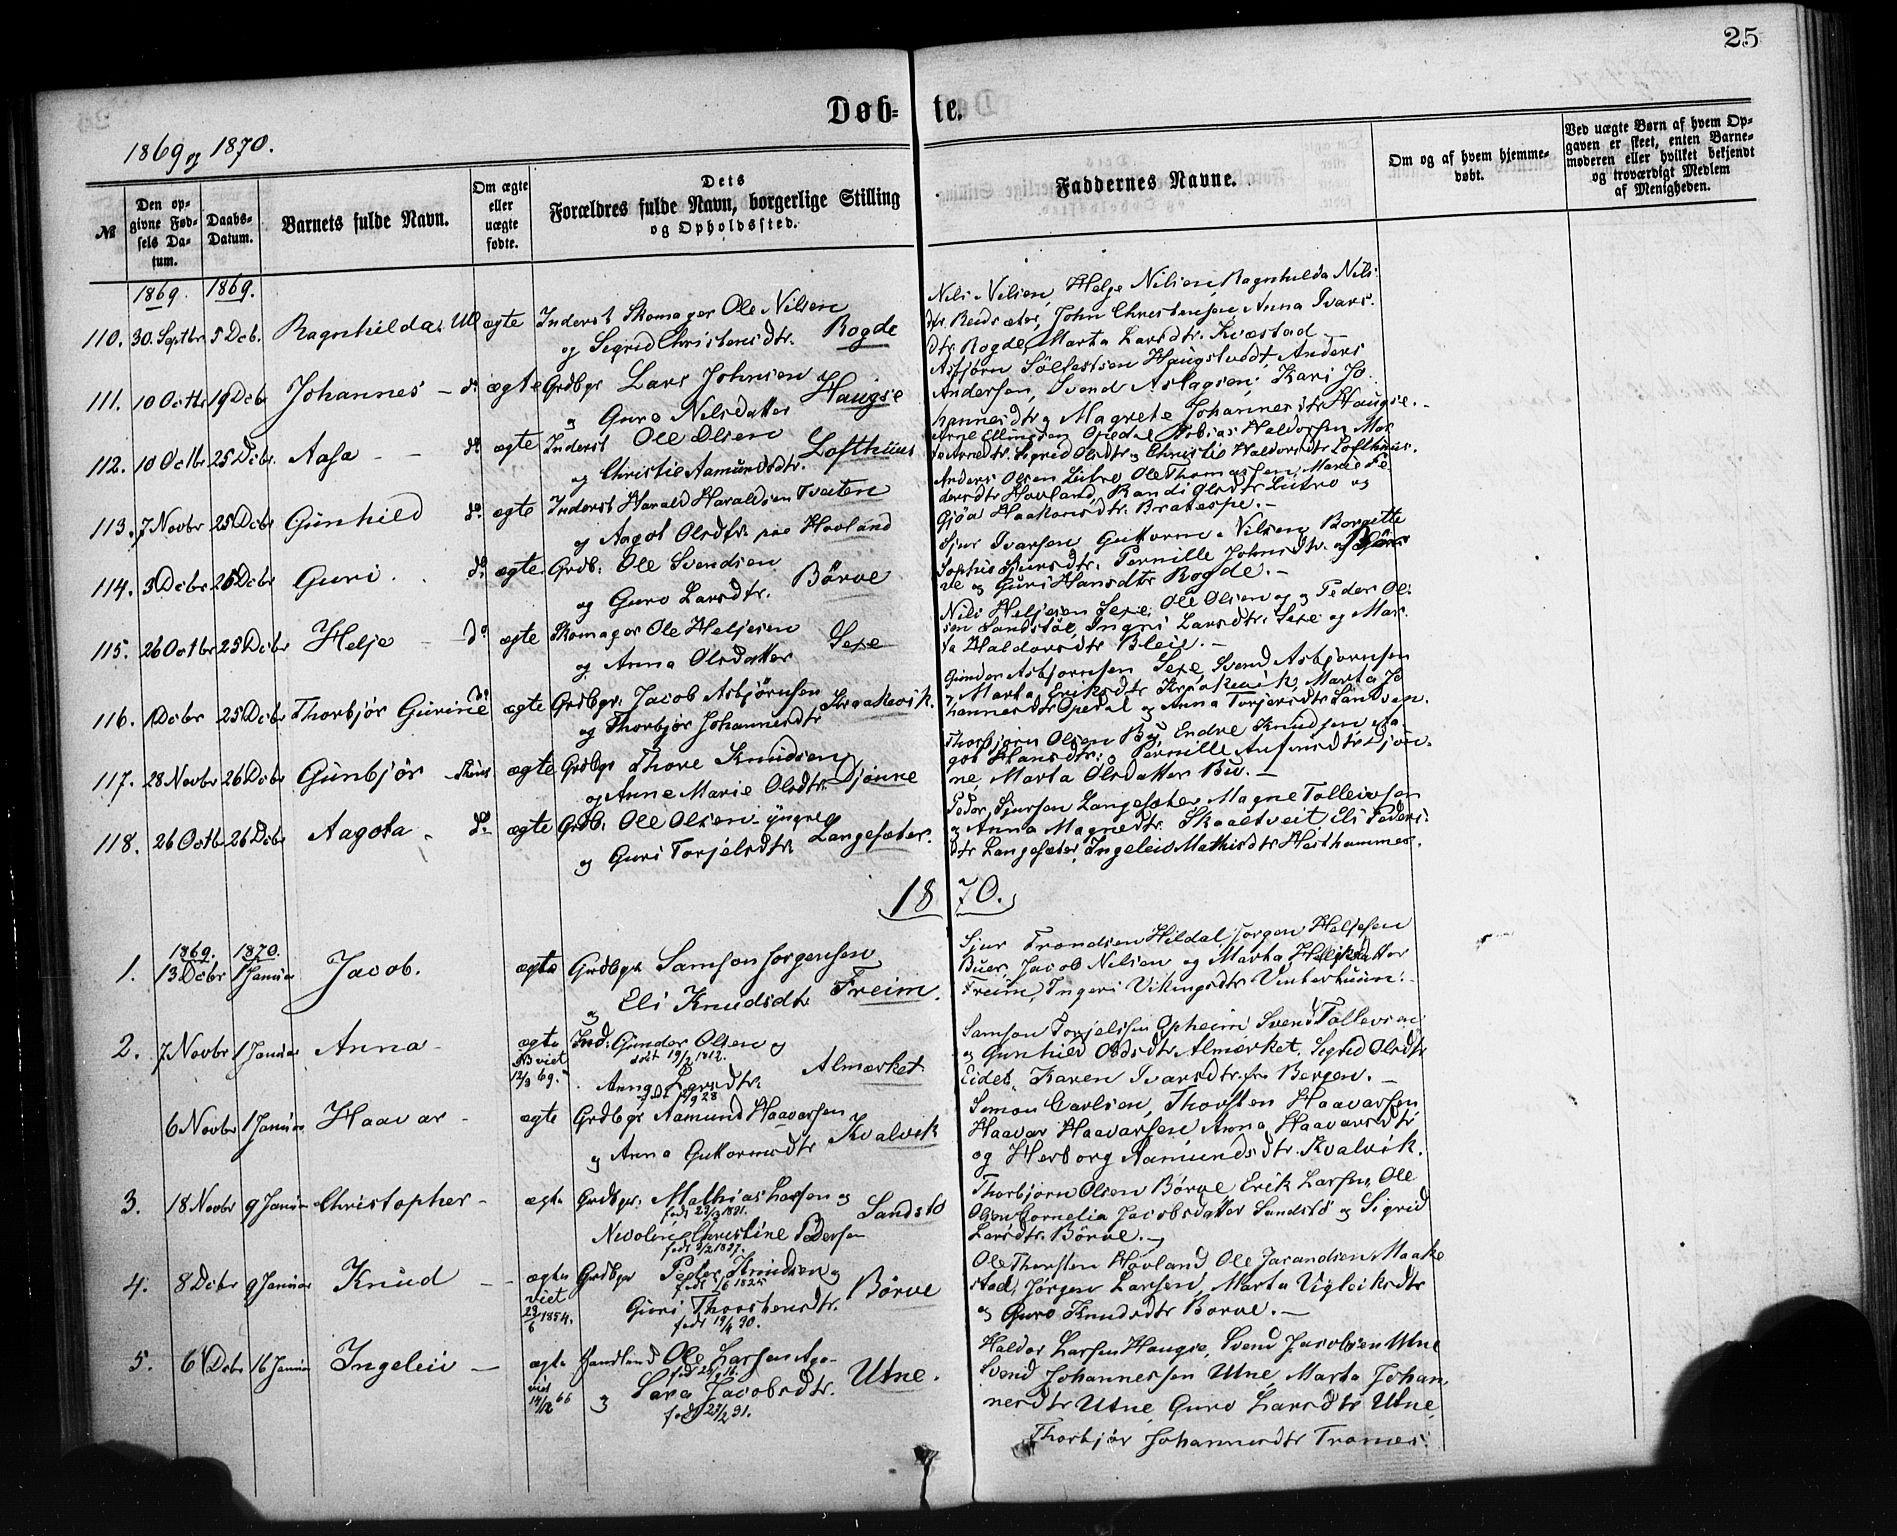 25
Døb- te.
1869 og 1870.
№
Den opgivne Fødsels Datum.
Daabs-Datum.
Barnets fulde Navn.
Om ægte eller uægte fødte.
Dets Forældres fulde Navn, borgerlige Stilling og Opholdssted.
Faddernes Navne.
Om og af hvem hjemmedøbt.
Ved uægte Børn af hvem Opgaven er skeet, enten Barnemoderen eller hvilket bekjendt og troværdigt Medlem af Menigheden.
1869. 1869.
110. 30. Septbr 5 Dcb. Ragnhilda Ul ægte Inderst Skomager Ole Nilsen
og Sigrid Christensdtr. Rogde
Nils Nilsen, Helge Nilsen, Ragnhilda Nils
dtr. Reisæter, John Christensen, Anna Ivars
dtr Rogde, Marta Larsdtr. Kvæstad
111. 10 Octbr 19 Dcbr Johannes - do ægte Grdbgr Lars Johnsen
og Guro Nilsdatter Haugse
Asbjørn Sølfestsen Haugstvedt, Anders
Andersen, Svend Aslagsen, Kari Jo
hannesdtr og Magrete Johannesdtr Haugse.
112. 10 Octbr 25 Dcbr. Aasa - - do ægte Inderst Ole Olsen
og Christie Aamundsdtr. Lofthuus
Arne Ellingsen Opedal Tobias Haldorsen Mar
ta Arnedtr. Sigrid Olsdtr og Christie Haldorsdtr Lofthuus.
113. 7 Novbr 25 Dcbr Gunhild do ægte Inderst Harald Haraldsen Tveiten
og Aagot Olsdtr. paa Hovland
Anders Olsen Lutro Ole Thomassen, Marie Pe
dersdtr Hovland, Randi Olsdtr Lutro og
Gjøa Haakonsdtr. Bratespe.
114. 3 Dcbr 26 Dcbr Guri. do ægte Grdb: Ole Svendsen
og Guro Larsdtr. Børve
Sjur Ivarsen Guttorm Nilsen Borgitte
Sophie Sjursdtr. Pernille Johnsdtr. og Bør
ve og Guri Hansdtr Rogde.
115. 26 Octbr 25 Dcbr Helje - do ægte Skomager Ole Heljesen
og Anna Olsdatter Sexe
Nils Heljesen Sexe, Ole Olsen og Peder Ol
sen Sandstøl, Ingri Larsdtr. Sexe og Mar
ta Haldorsdtr Bleie.
116. 1 Dcbr 25 Dcbr Thorbjør Gurine do ægte Grdbgr. Jacob Asbjørnsen
og Thorbjør Johannesdtr Kraakevik.
Gunder Asbjørnsen Sexe, Svend Asbjørnsen
og Marta Eriksdtr Kraakevik, Marta Jo
hannesdtr Opedal og Anna Torjersdtr Sandsen.
117. 28 Novbr 26 Dcbr Gunbjør ægte Grdbgr Thore Knudsen
og Anne Marie Olsdtr. Djønne
Thorbjørn Olsen Bu, Endre Knudsen, Aa
got Hansdtr. Pernille Aufinsdtr Djøn
ne, Marta Olsdatter Bu.
118. 26 Octbr 26 Dcbr Aagota do ægte Grdb: Ole Olsen yngre
og Guri Torjelsdtr. Langesæter.
Peder Sjursen Langesæter, Magne Tolleivsen
og Anna Magnedtr. Skaaltveit Eli Peders
dtr Langesæter, Ingeleiv Mathisdtr Hesthammer.
1870.
1869. 1870.
1. 13 Dcbr 1 Januar Jacob. ægte Grdbgr Samson Jørgensen
og Eli Knudsdtr Freim.
Sjur Trondsen Hildal Jørgen Heljesen
Buer, Jacob Nilsen og Marta Heljesdatter
Freim, Ingeri Vikingsdtr Vinterhuun.
2. 7 Novbr 1 Januar Anna - ægte Ind. Gunder Olsen og
viet 12/3 69. født 19/2 1812.
Anna Larsdtr. Almerket
født 28
Samson Torjelssen Opheim Svend Tollevsen
og Gunhild Oddsdtr Almerket. Sigrid Olsdtr
Eide, Karen Ivarsdtr. fra Bergen.
6 Novbr 1 Januar Haavar - ægte Grdbgr Aamund Haavarsen
og Anna Guttormsdtr Kvalvik
Simon Carlsen, Thorsten Haavarsen
Haavar Haavarsen, Anna Haavarsdtr
og Herborg Aamundsdtr. Kvalvik.
3. 18 Novbr 9 Januar Christopher - ægte Grdbgr. Mathias Larsen og
Nicoline Christine Pedersen Sandstø
Thorbjørn Olsen Børve, Erik Larsen, Ole
Olsen Cornelia Jacobsdatter Sandstø og Sigrid
Larsdtr. Børve.
4. 8 Dcbr 9 Januar Knud - - ægte Grdbgr Peder Knudsen og
viet 23/6 1854. født 1/6 1825
Guri Thorstensdtr. Børve
født 19/4 30.
Ole Thorsten Hovland Ole Jacandsen Maake
stad, Jørgen Larsen, Marta Vigleiksdtr
og Guro Knudsdtr Børve.
5. 6 Dcbr 16 Januar Ingeleiv - ægte Ole Larsen Aga
viet 14/12 66
og Sara Jacobsdtr. Utne.
født 23/2 31.
Haldor Larsen Haugse, Svend Jacobsen Utne
Svend Johannessen Utne, Marta Johan
nesdtr Utne, Guro Larsdtr Utne,
Thorbjør Johannesdtr Tromes.